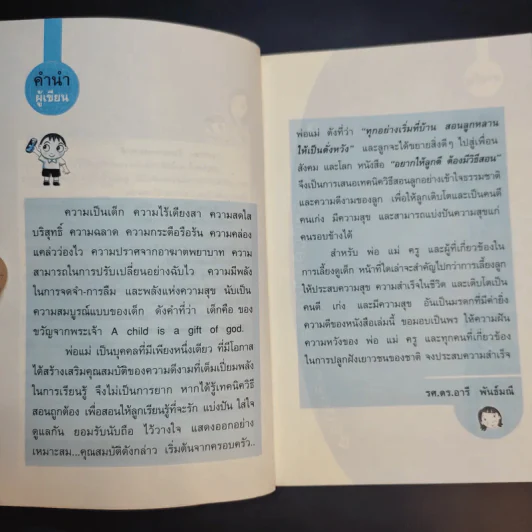 คำนำ
ผู้เขียน
ความเป็นเด็ก ความไร้เดียงสา ความสดใส
บริสุทธิ์ ความฉลาด ความกระตือรือร้น ความคล่อง
แคล่วว่องไว ความปราศจากอาฆาตพยาบาท ความ
สามารถในการปรับเปลี่ยนอย่างฉับไว ความมีพลัง
ในการจดจำ-การลืม และพลังแห่งความสุข นับเป็น
ความสมบูรณ์แบบของเด็ก ดังคำที่ว่า เด็กคือ ของ
ขวัญจากพระเจ้า A child is a gift of god.
พ่อแม่ เป็นบุคคลที่มีเพียงหนึ่งเดียว ที่มีโอกาส
ได้สร้างเสริมคุณสมบัติของความดีงามที่เต็มเปี่ยมพลัง
ในการเรียนรู้ จึงไม่เป็นการยาก หากได้รู้เทคนิควิธี
สอนถูกต้อง เพื่อสอนให้ลูกเรียนรู้ที่จะรัก แบ่งปัน ใส่ใจ
ดูแลกัน ยอมรับนับถือ ไว้วางใจ แสดงออกอย่าง
เหมาะสม...คุณสมบัติดังกล่าว เริ่มต้นจากครอบครัว..
พ่อแม่ ดังที่ว่า "ทุกอย่างเริ่มที่บ้าน สอนลูกหลาน
ให้เป็นดั่งหวัง" และลูกจะได้ขยายสิ่งดีๆ ไปสู่เพื่อน
สังคม และโลก หนังสือ "อยากให้ลูกดี ต้องมีวิธีสอน"
จึงเป็นการเสนอเทคนิควิธีสอนลูกอย่างเข้าใจธรรมชาติ
และความดีงามของลูก เพื่อให้ลูกเติบโตและเป็นคนดี
คนเก่ง มีความสุข และสามารถแบ่งปันความสุขแก่
คนรอบข้างได้
สำหรับ พ่อ แม่ ครู และผู้ที่เกี่ยวข้องใน
การเลี้ยงดูเด็ก หน้าที่ใดเล่าจะสำคัญไปกว่าการเลี้ยงลูก
ให้ประสบความสุข ความสำเร็จในชีวิต และเติบโตเป็น
คนดี เก่ง และมีความสุข อันเป็นมรดกที่มีค่ายิ่ง
ความดีของหนังสือเล่มนี้ ขอมอบเป็นพร ให้ความฝัน
ความหวังของ พ่อ แม่ ครู และทุกคนที่เกี่ยวข้อง
ในการปลูกฝังเยาวชนของชาติ จงประสบความสำเร็จ
รศ.ดร.อารี พันธ์มณี